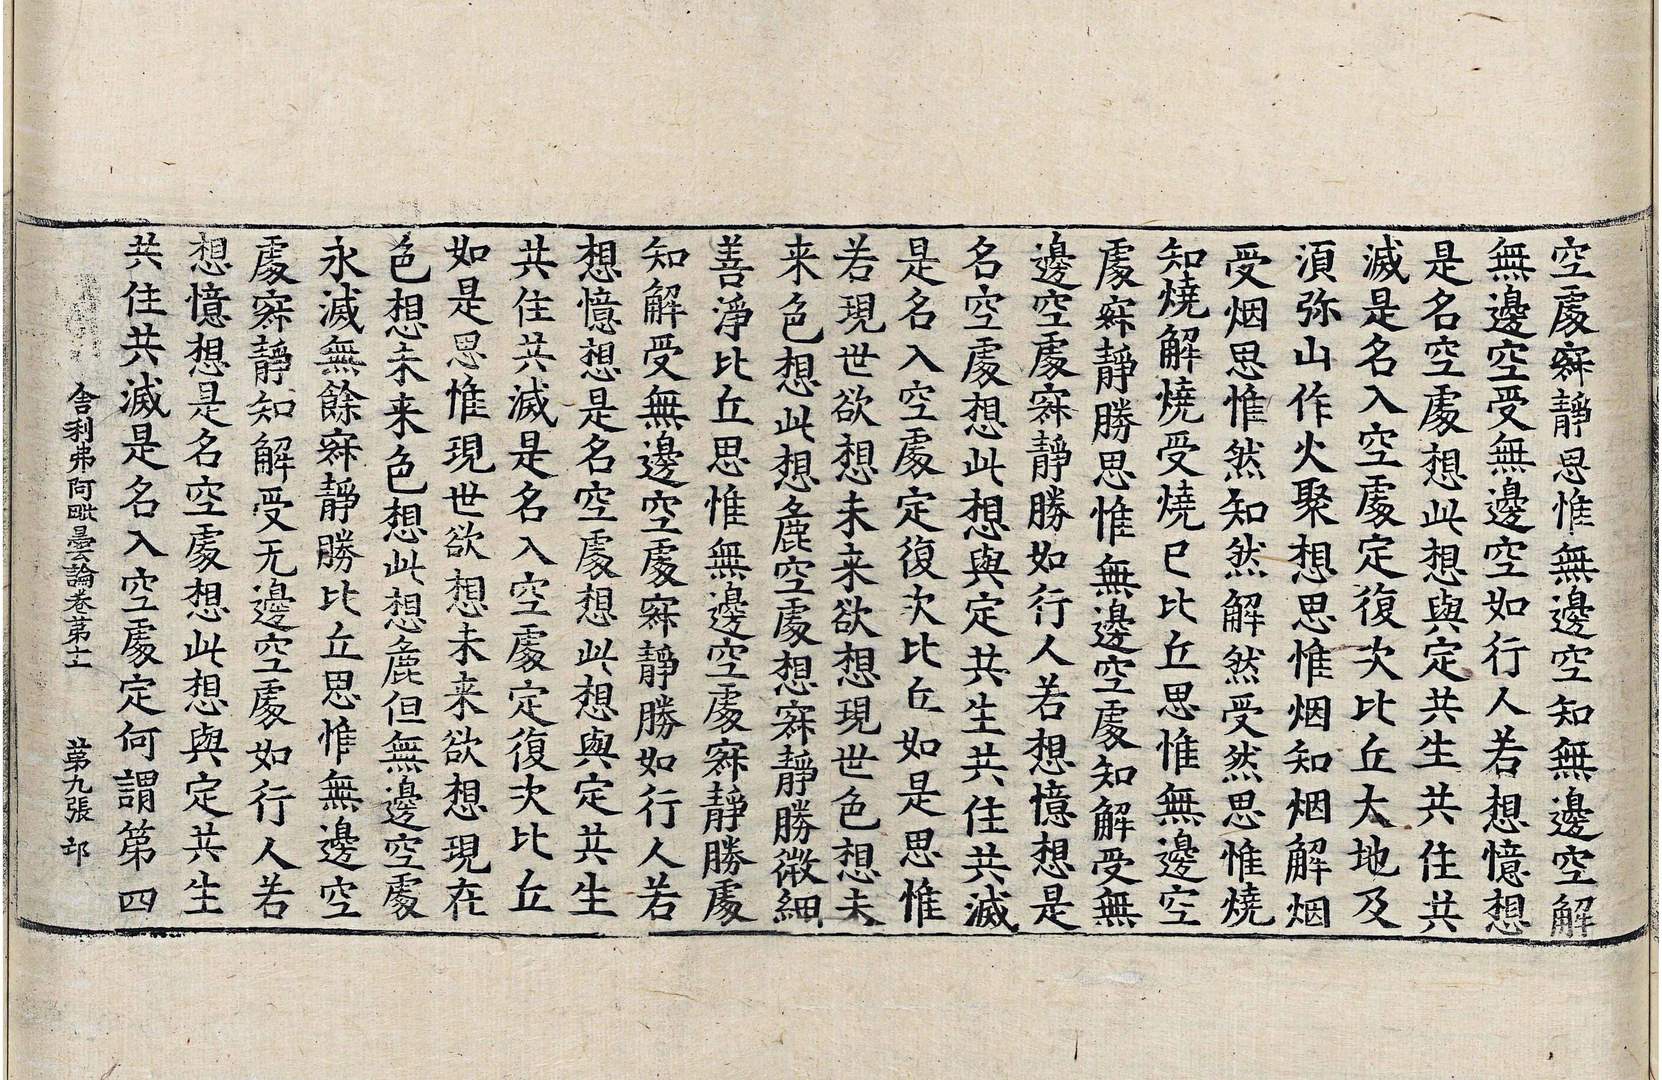 空處寂靜思惟無邊空知無邊空解
無邊空受無邊空如行人若想憶想
是名空處想此想與定共生共住共
滅是名入空處定復次比丘大地及
湏弥山作火聚想思惟烟知烟解烟
受烟思惟然知然解然受然思惟燒
知燒解燒受燒已比丘思惟無邊空
處寂靜勝思惟無邊空處知解受無
邊空處寂靜勝如行人若想憶想是
名空處想此想與定共生共住共滅
是名入空處定復次比丘如是思惟
若現世欲想未来欲想現世色想未
来色想此想麁空處想寂靜勝微細
善淨比丘思惟無邊空處寂靜勝處
知解受無邊空處寂靜勝如行人若
想憶想是名空處想此想與定共生
共住共滅是名入空處定復次比丘
如是思惟現世欲想未来欲想現在
色想未来色想此想麁但無邊空處
永滅無餘寂靜勝比丘思惟無邊空
處寂靜知解受无邊空處如行人若
想憶想是名空處想此想與定共生
共住共滅是名入空處定何謂第四
舍利弗阿毗曇論卷苐十二 苐九張 邙